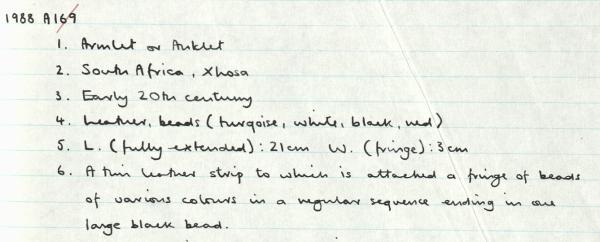 1988 A169
1. Armlet or Anklet
2. South Africa, Xhosa
3. Early 20th century
4. Leather, beads (turqoise, white, black, red)
5. L. (fully extended): 21cm W. (fringe): 3cm
6. A thin leather strip to which is attached a fringe of beads
of various colours in a regular sequence ending in one
large black bead.